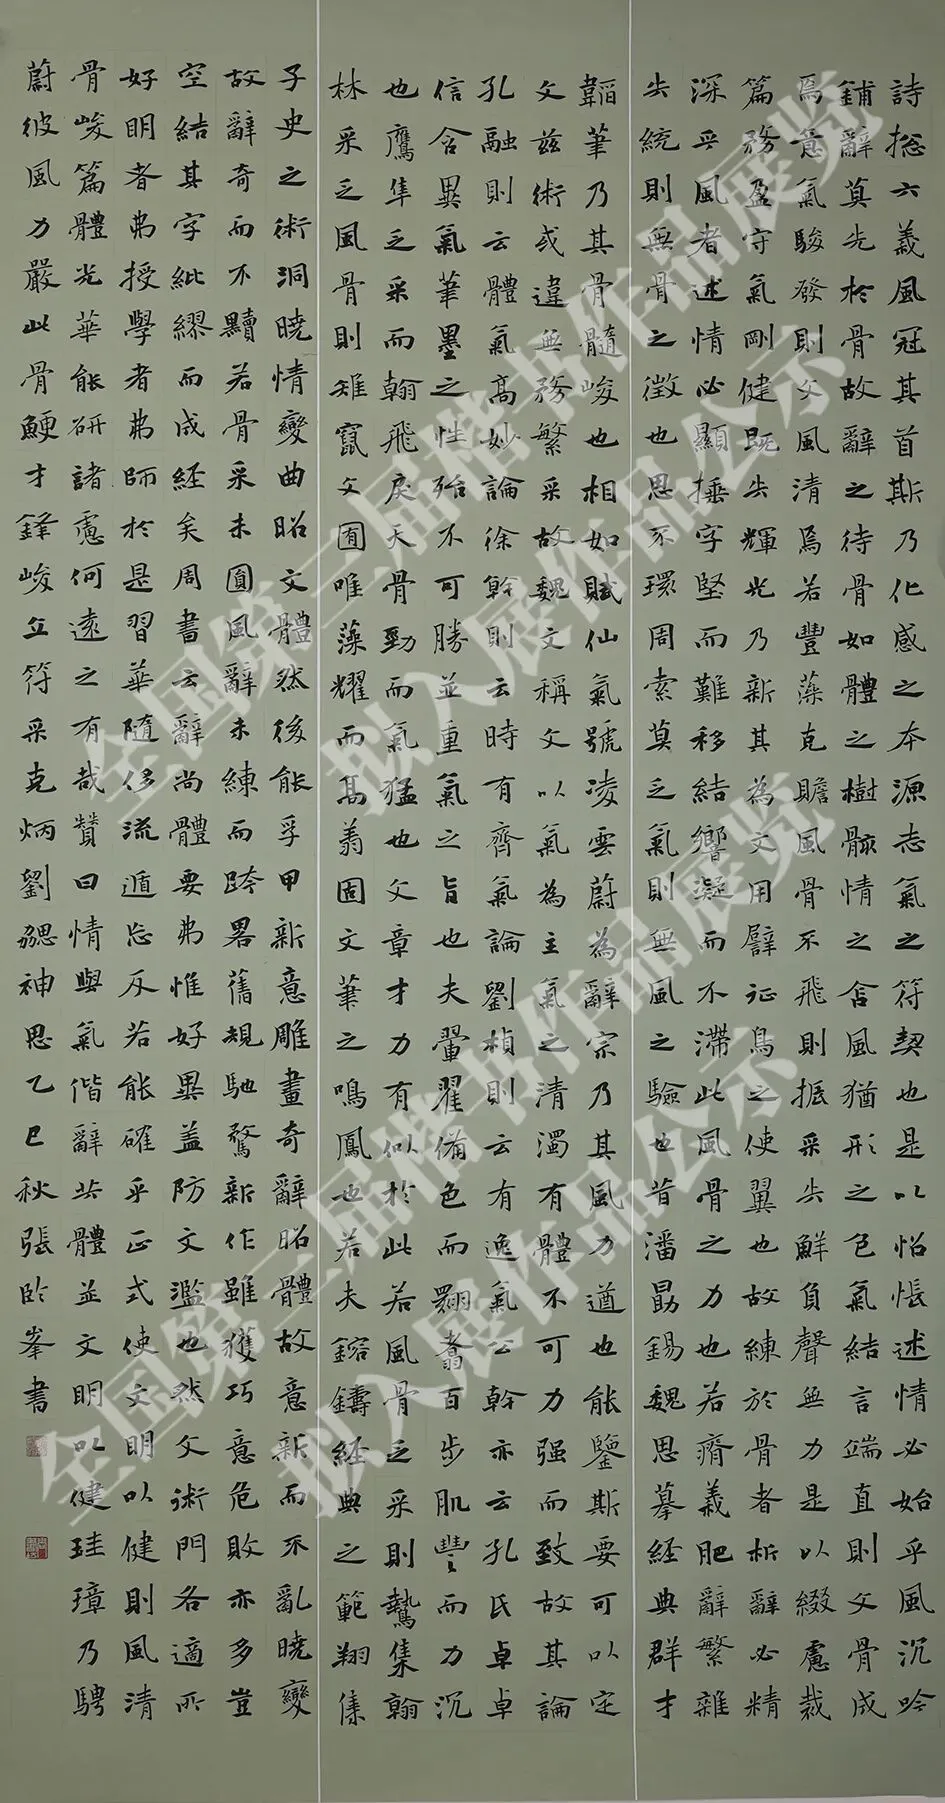 詩揔六義風冠其首斯乃化感之本源志氣之符契也是以怊悵述情必始乎風沉吟
鋪辭莫先於骨故辭之待骨如體之樹骸情之含風猶形之包氣結言端直則文骨成
焉意氣駿發則文風清焉若豐藻克贍風骨不飛則振采失鮮負聲無力是以綴慮裁
篇務盈守氣剛健既輝光乃新其為文用譬征鳥之使翼也故練於骨者析辭必精
深乎風者述情必顯捶字堅而難移結響凝而不滯此風骨之力也若瘠義肥辭繁雜
失統則無骨之徵也思不環周索莫乏氣則無風之驗也昔潘勗錫魏思摹經典群才
韜筆乃其骨髓峻也相如賦仙氣號凌雲蔚為辭宗乃其風力遒也能鑒斯要可以定
文茲術或違無務繁采故魏文稱文以氣為主氣之清濁有體不可力强而致故其論
孔融則云體氣高妙論徐幹則云時有齊氣論劉楨則云有逸氣公幹亦云孔氏卓卓
信含異氣筆墨之性殆不可勝並重氣之旨也夫翬翟備色而翾翥百步肌豐而力沉
也鷹隼乏采而翰飛戾天骨勁而氣猛也文章才力有似於此若風骨乏采則鷙集翰
林采乏風骨則雉竄文囿唯藻耀而高翔固文筆之鳴鳳也若夫鎔鑄經典之範翔集
子史之術洞曉情變曲昭文體然後能孚甲新意雕畫奇辭昭體故意新而不亂曉變
故辭奇而不黷若骨采未圓風辭未練而跨畧舊規馳騖新作雖獲巧意危敗亦多豈
空結其字紕繆而成經矣周書云辭尚體要弗惟好異蓋防文濫也然文術門各適所
好明者弗授學者弗師於是習華隨侈流遁忘反若能確乎正式使文明以健則風清
骨峻篇體光華能研諸慮何遠之有哉贊曰情與氣偕辭共體並文明以健珪璋乃騁
蔚彼風力嚴此骨鯁才鋒峻立符采克炳劉勰神思乙巳秋張峯書
全国第三届楷书作品展览
拟入展作品公示
全国第三届楷书作品展览
拟入展作品公示